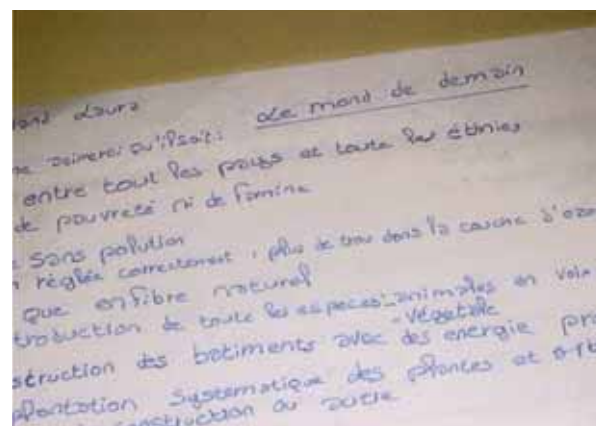 Laura
Le mond de demain
aimerei qu'il soit:
entre tout les pays et toute les éthnies
de pauvreté ni de famine
sans polution
réglée correctement, plus de trou dans la couche d'ozo
que en fibre naturel
troduction de toute les espèces animales en voie
végétale
struction des batiments avec des energie pro
plantation systematique des plantes et arb
construction ou autre